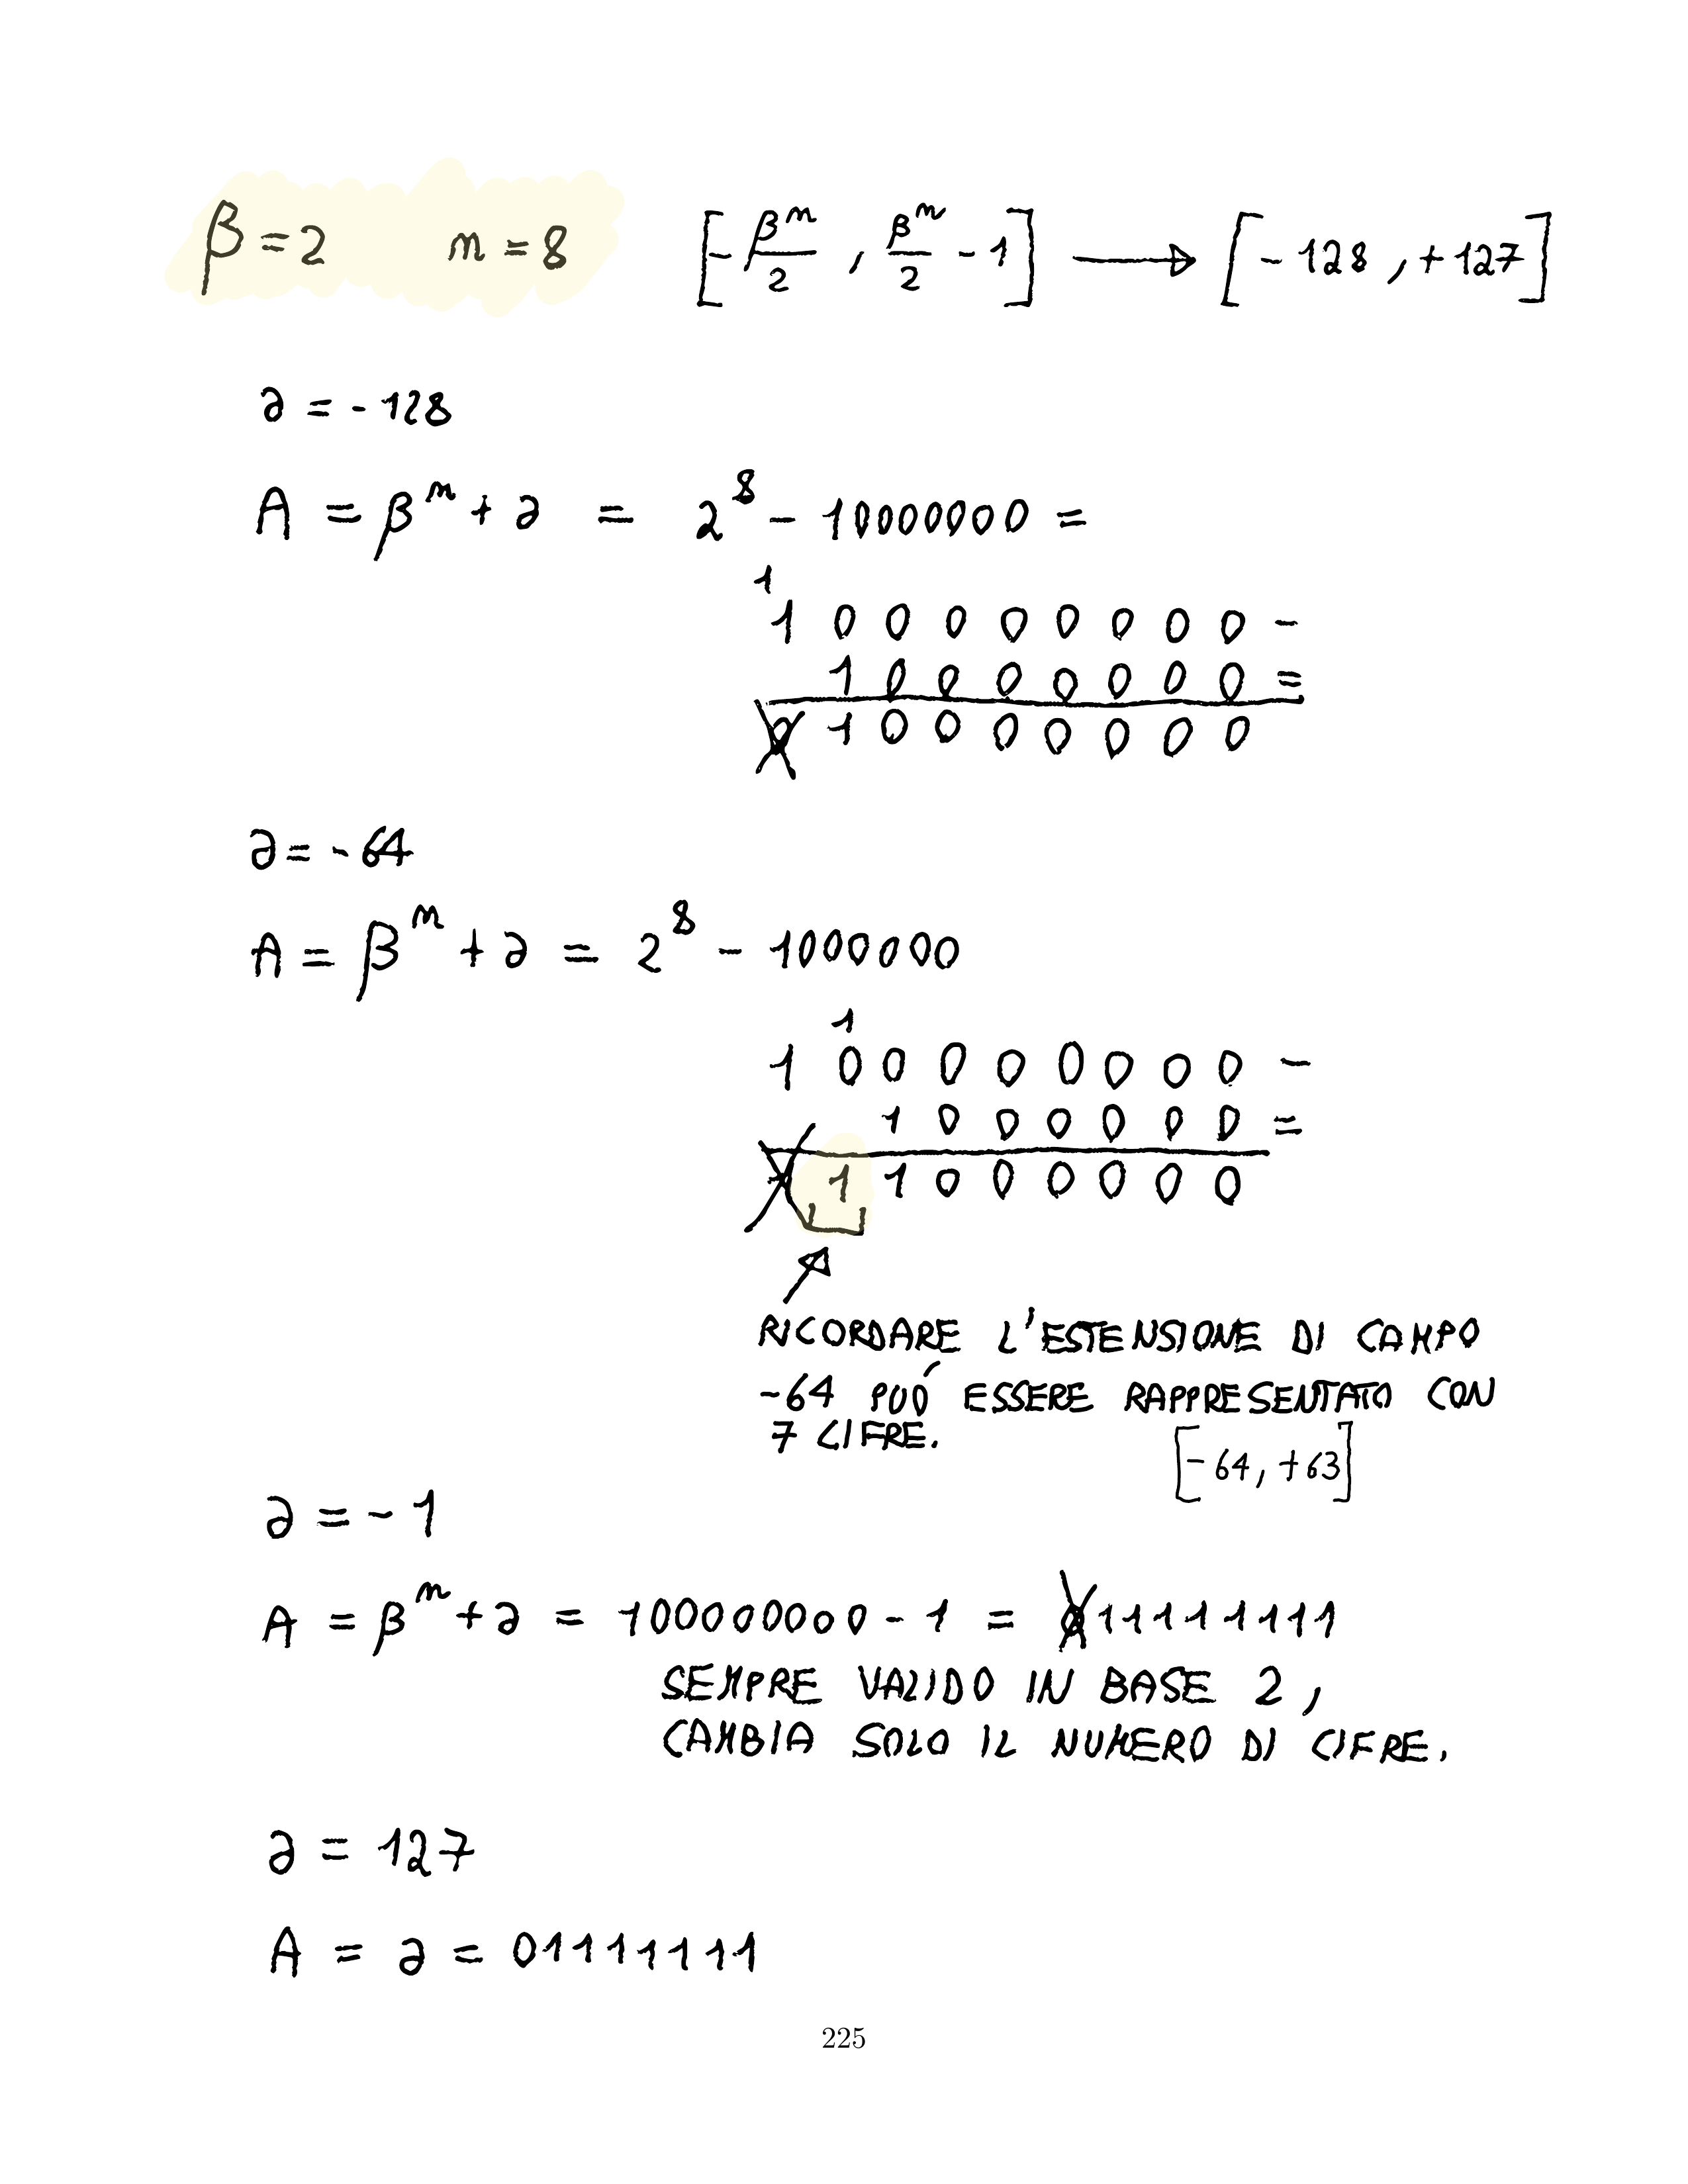 β = 2 n = 8 [-βⁿ/2 , βⁿ/2 - 1] → [-128 , +127]
a = -128
A = βⁿ + a = 2⁸ - 10000000 =
1
1 0 0 0 0 0 0 0 0 -
1 0 0 0 0 0 0 0 =
0 1 0 0 0 0 0 0 0
a = -64
A = βⁿ + a = 2⁸ - 1000000
1
1 0 0 0 0 0 0 0 0 -
1 0 0 0 0 0 0 =
1 1 0 0 0 0 0 0
RICORDARE L'ESTENSIONE DI CAMPO
-64 PUÓ ESSERE RAPPRESENTATO CON
7 CIFRE.
[-64, +63]
a = -1
A = βⁿ + a = 100000000 - 1 = 011111111
SEMPRE VALIDO IN BASE 2,
CAMBIA SOLO IL NUMERO DI CIFRE.
a = 127
A = a = 01111111
225